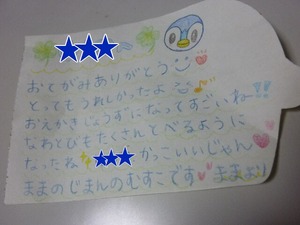 おてがみありがとう
とってもうれしかったよ
おえかきじょうずになってすごいねー!!
なわとびもたくさんとべるように
なったね かっこいいじゃん
ままのじまんのむすこです ままより